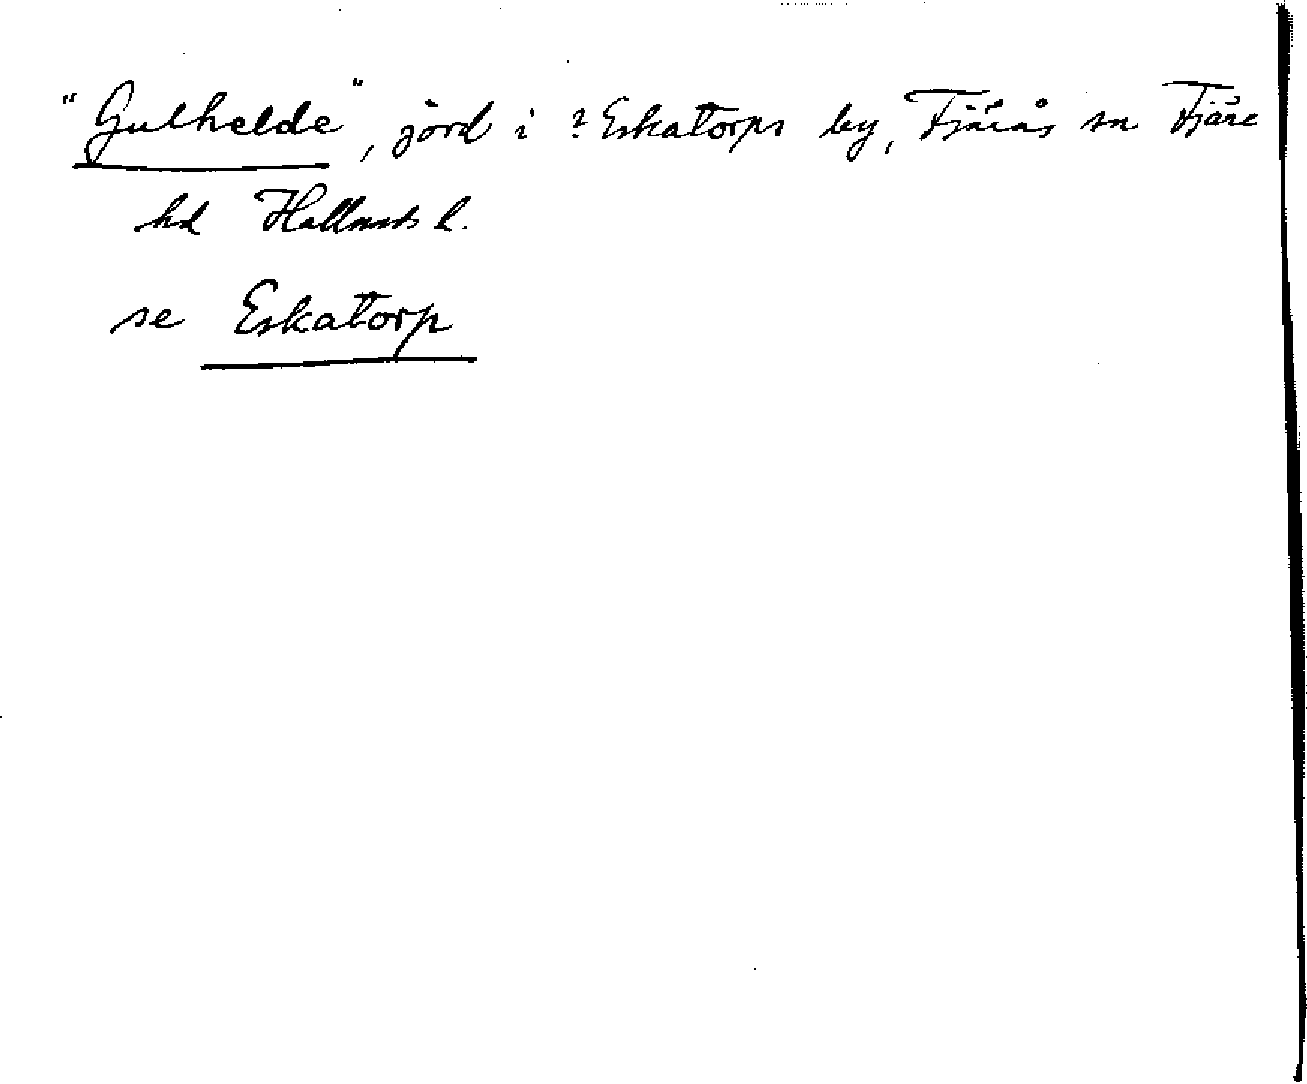 "Gulhelde", jord i ? Eskatorps by, Fjärås sn Fjäre
hd Hallands l.
se Eskatorp